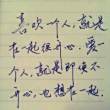 喜欢一个人，就是
在一起很开心，爱
一个人，就是即使不
开心，也想在一起